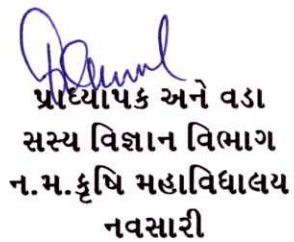 પ્રાધ્યાપક અને વડા
સસ્ય વિજ્ઞાન વિભાગ
ન.મ.કૃષિ મહાવિધાલય
નવસારી